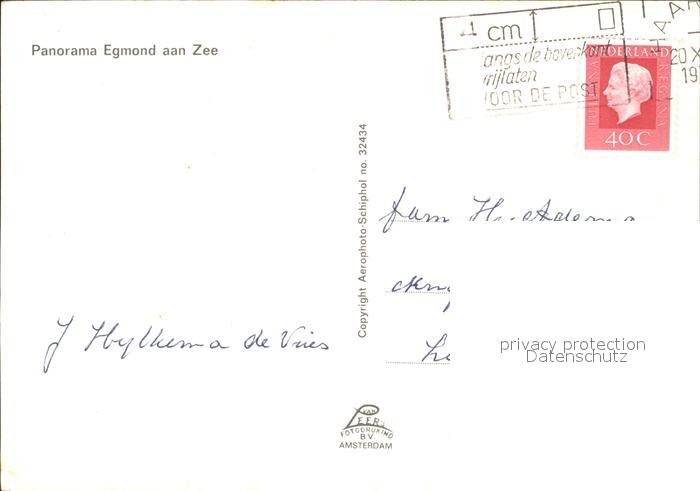 Panorama Egmond aan Zee
1 cm
langs de bovenkant
vrijlaten
VOOR DE POST
NEDERLAND
JULIANA REGINA
40 C
20 X
19
Copyright Aerophoto-Schiphol no. 32434
fam
J Hylkema de Vries
privacy protection
Datenschutz
VAN LEER'S
FOTODRUKIND
B.V.
AMSTERDAM